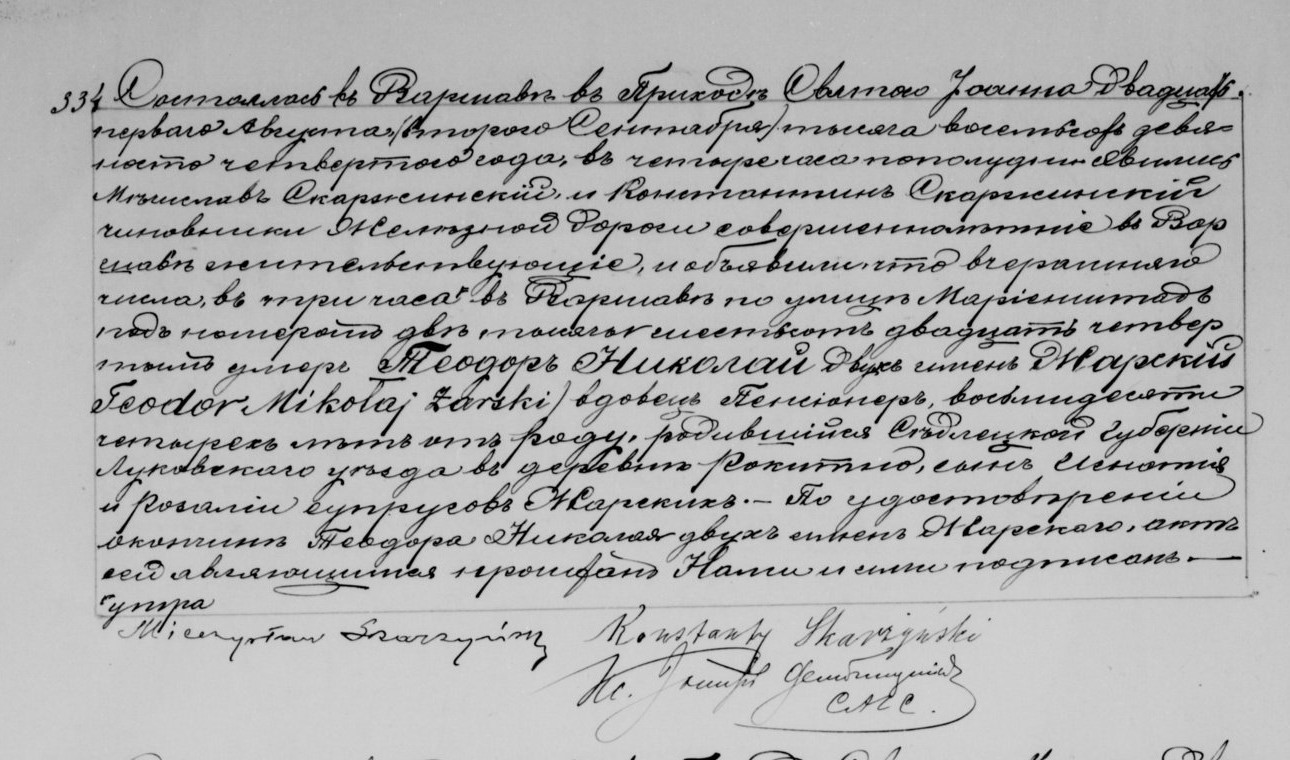 334 Состоялось въ Варшавѣ въ Приходѣ Святаго Іоанна двадцать
перваго Августа /второго Сентября/ тысяча восемьсотъ девя-
носто четвертого года, въ четыре часа пополудни. Явились
Мѣчиславъ Скаржинскій, и Константинъ Скаржинскій
чиновники Желѣзной Дороги совершеннолѣтніе въ Вар
шавѣ жительствующіе, и объявили, что вчерашняго
числа, въ три часа ⸢ въ Варшавѣ по улицѣ Маріенштадъ
подъ номеромъ двѣ тысячи шестьсотъ двадцать четвер
тымъ умеръ Теодоръ Николай двухъ именъ Жарскій
Teodor Mikołaj Żarski) вдовецъ Пенсіонеръ, восьмидесяти
четырехъ лѣтъ отъ роду, родившійся Сѣдлецкой Губерніи
Луковскаго уѣзда въ деревнѣ Рокитно, сынъ Игнатія
и Розаліи супруговъ Жарскихъ. — По удостовѣреніи
окончинѣ Теодора Николая двухъ именъ Жарскаго, актъ
сей являющимся прочитанъ Нами и ими подписанъ. —
⸢ утра
Mieczysław Skarzyński Konstanty Skarżyński
Кс.
САСС.